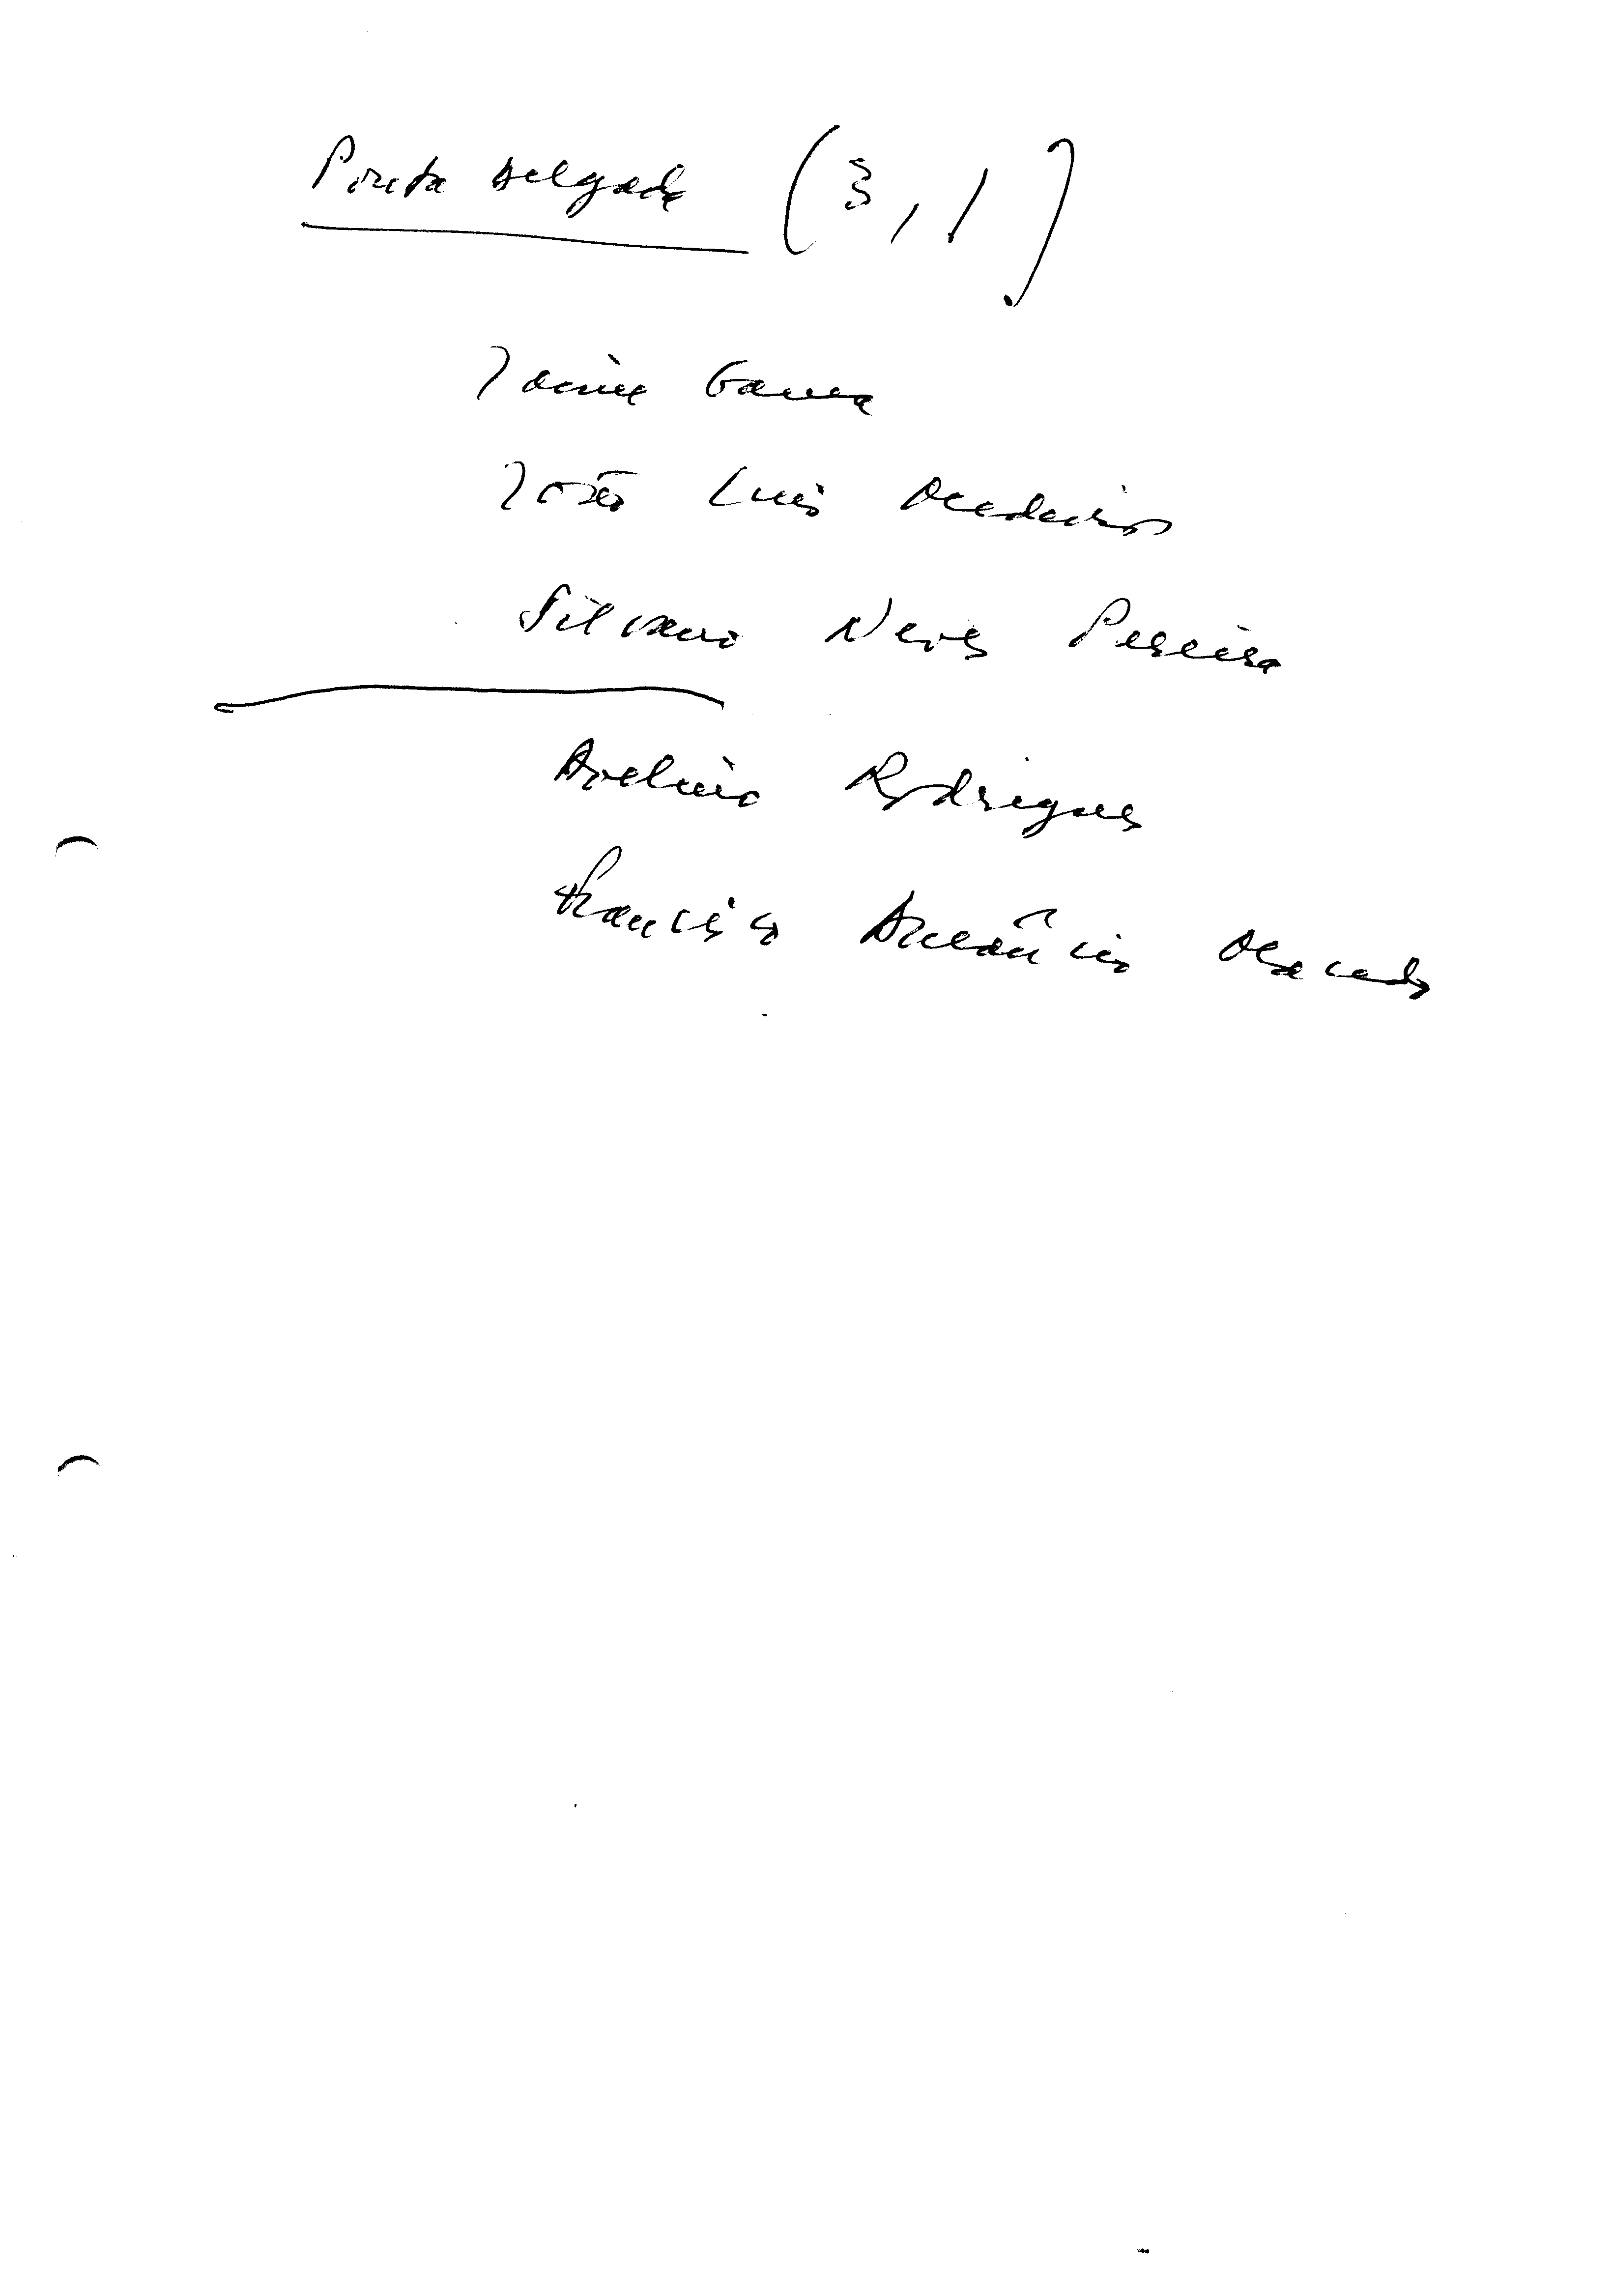 Ponta Delgada (3,1)
Jaime Gama
João Luis Medeiros
Silvano Neves Pereira
Avelino Rodrigues
Francisco Macedo